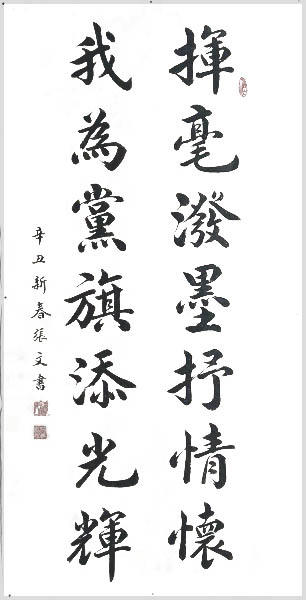 揮毫潑墨抒情懷
我為黨旗添光輝
辛丑新春張文書